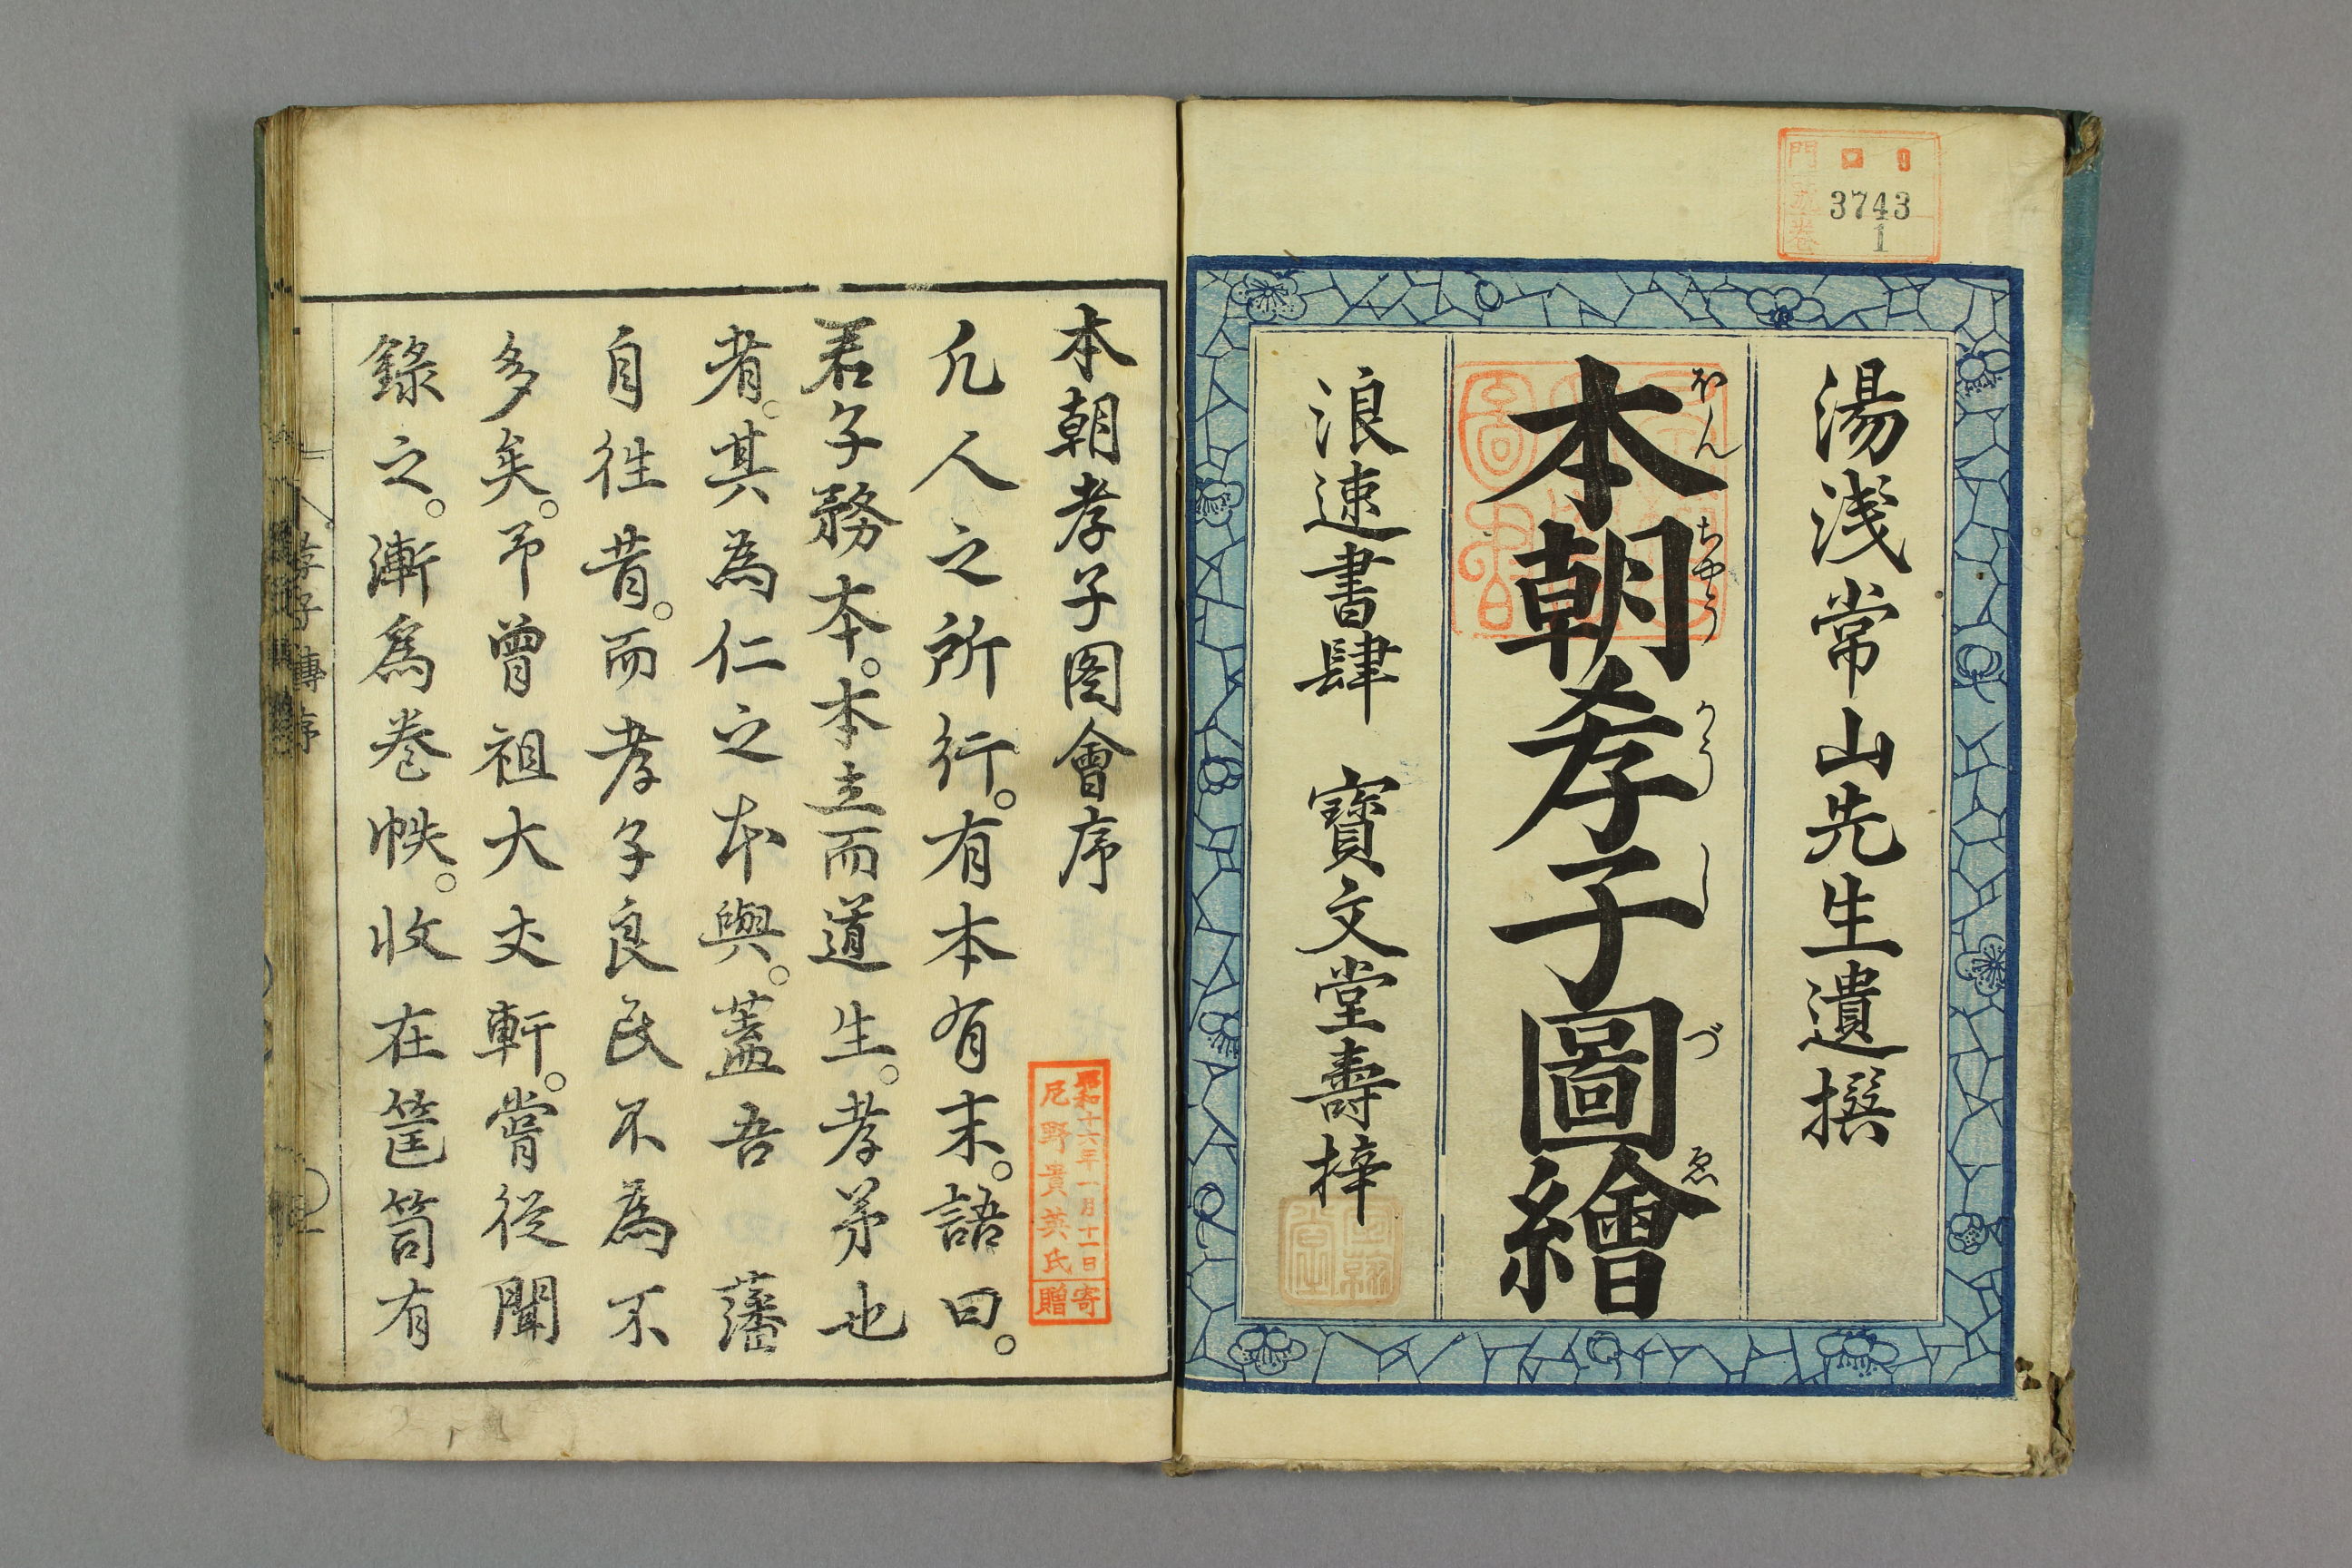 湯浅常山先生遺撰
本朝孝子圖繪
ほんちやうかうしづゑ
浪速書肆　寶文堂壽梓
3743
1
門
號
卷
本朝孝子图會序
凢人之所行。有本有末。語曰。
君子務本。本立而道生。孝弟也
者。其為仁之本與。蓋吾　藩
自徃昔。而孝子良民不為不
多矣。予曾祖大丈軒。嘗從聞
錄之。漸為巻帙。收在筐笥有
昭和十六年一月十一日寄
尼野貴英氏贈
孝子傳序